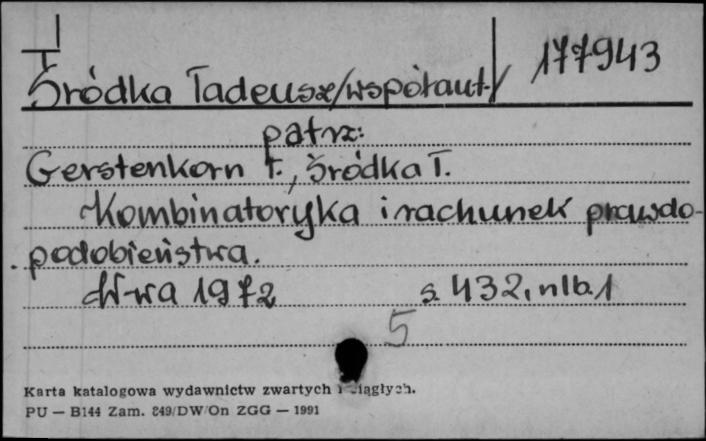 I
Śródka Tadeusz/współaut./ 177943
patrz:
Gerstenkorn T., Śródka T.
Kombinatoryka i rachunek prawdo-
podobieństwa.
W-wa 1972 s. 432, nlb. 1
5
Karta katalogowa wydawnictw zwartych i ciągłych.
PU — B144 Zam. 849/DW/On ZGG — 1991